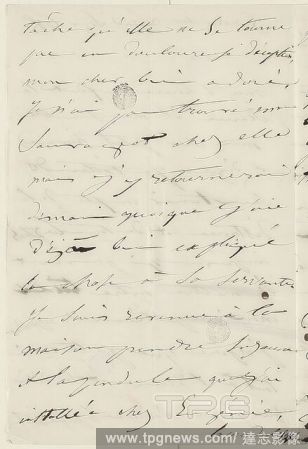 tâche qu'elle ne se tourne
pas en douloureuse déception
mon cher bien adoré.
Je n'ai pas trouvé Mme
Sauvageot chez elle
mais j'y retournerai
demain quoique j'aie
déjà bien expliqué
la chose à sa servante.
Je suis revenue à la
maison prendre
et la pendule que j'ai
installée chez Eugénie.
TPG
www.tpgnews.com/ 達志影像